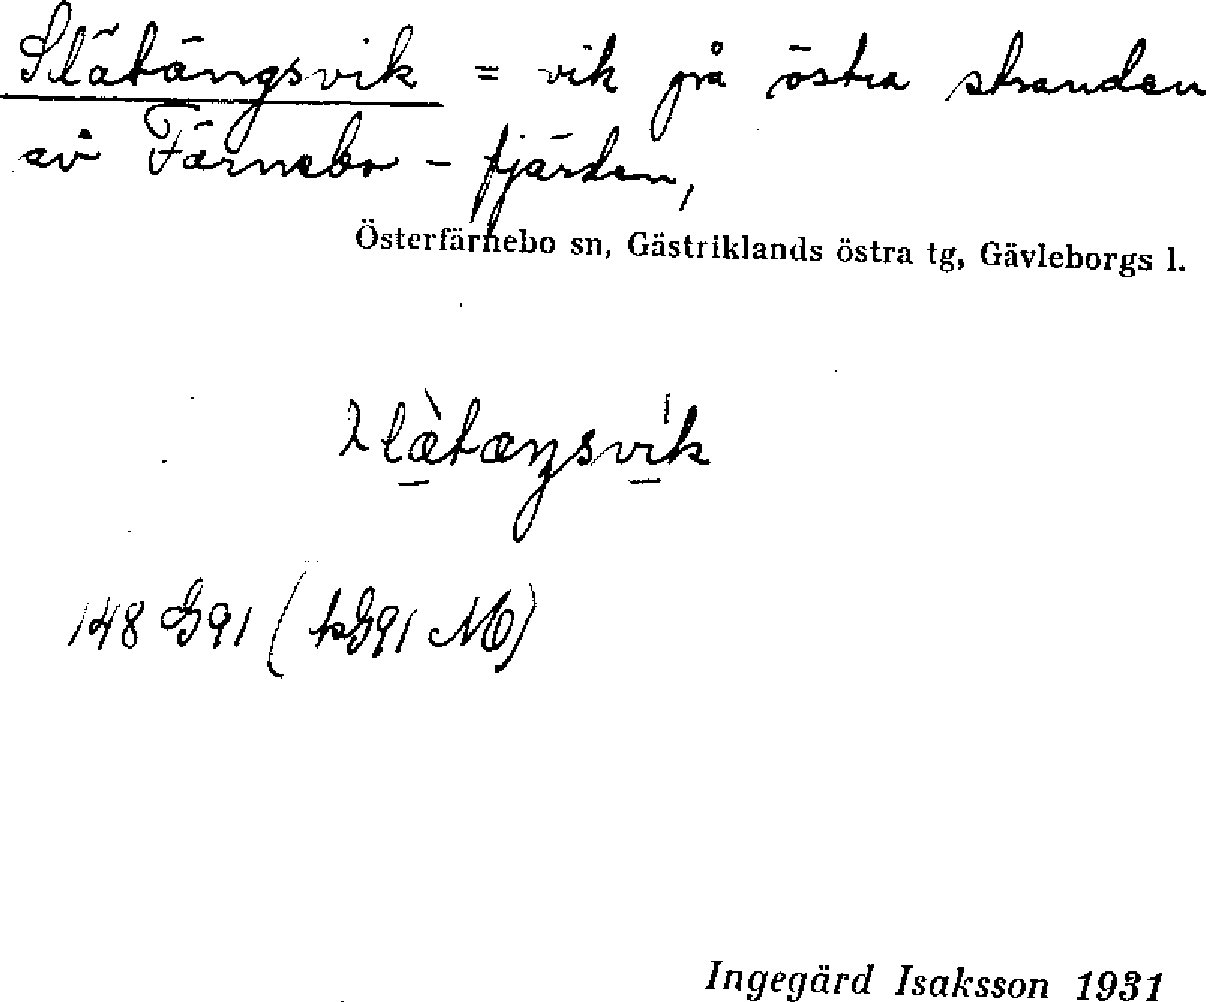 Slätängsvik = vik på östra stranden
av Färnebo-fjärden,
Österfärnebo sn, Gästriklands östra tg, Gävleborgs l.
148 G91 (
Ingegärd Isaksson 1931